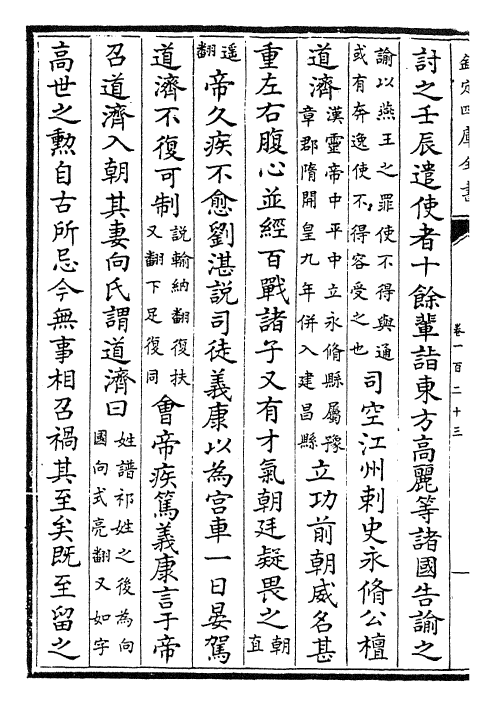 欽定四庫全書
卷一百二十三
討之壬辰遣使者十餘輩詣東方高麗等諸國告諭之
諭以燕王之罪使不得與通
或有奔逸使不得容受之也
司空江州刺史永脩公檀
道濟
漢靈帝中平中立永脩縣屬豫
章郡隋開皇九年併入建昌縣
立功前朝威名甚
重左右腹心並經百戰諸子又有才氣朝廷疑畏之
朝
直
遥
翻
帝久疾不愈劉湛説司徒義康以為宫車一日晏駕
道濟不復可制
説輸納翻復扶
又翻下足復同
會帝疾篤義康言于帝
召道濟入朝其妻向氏謂道濟曰
姓譜祁姓之後為向
國向式亮翻又如字
高世之勲自古所忌今無事相召禍其至矣既至留之